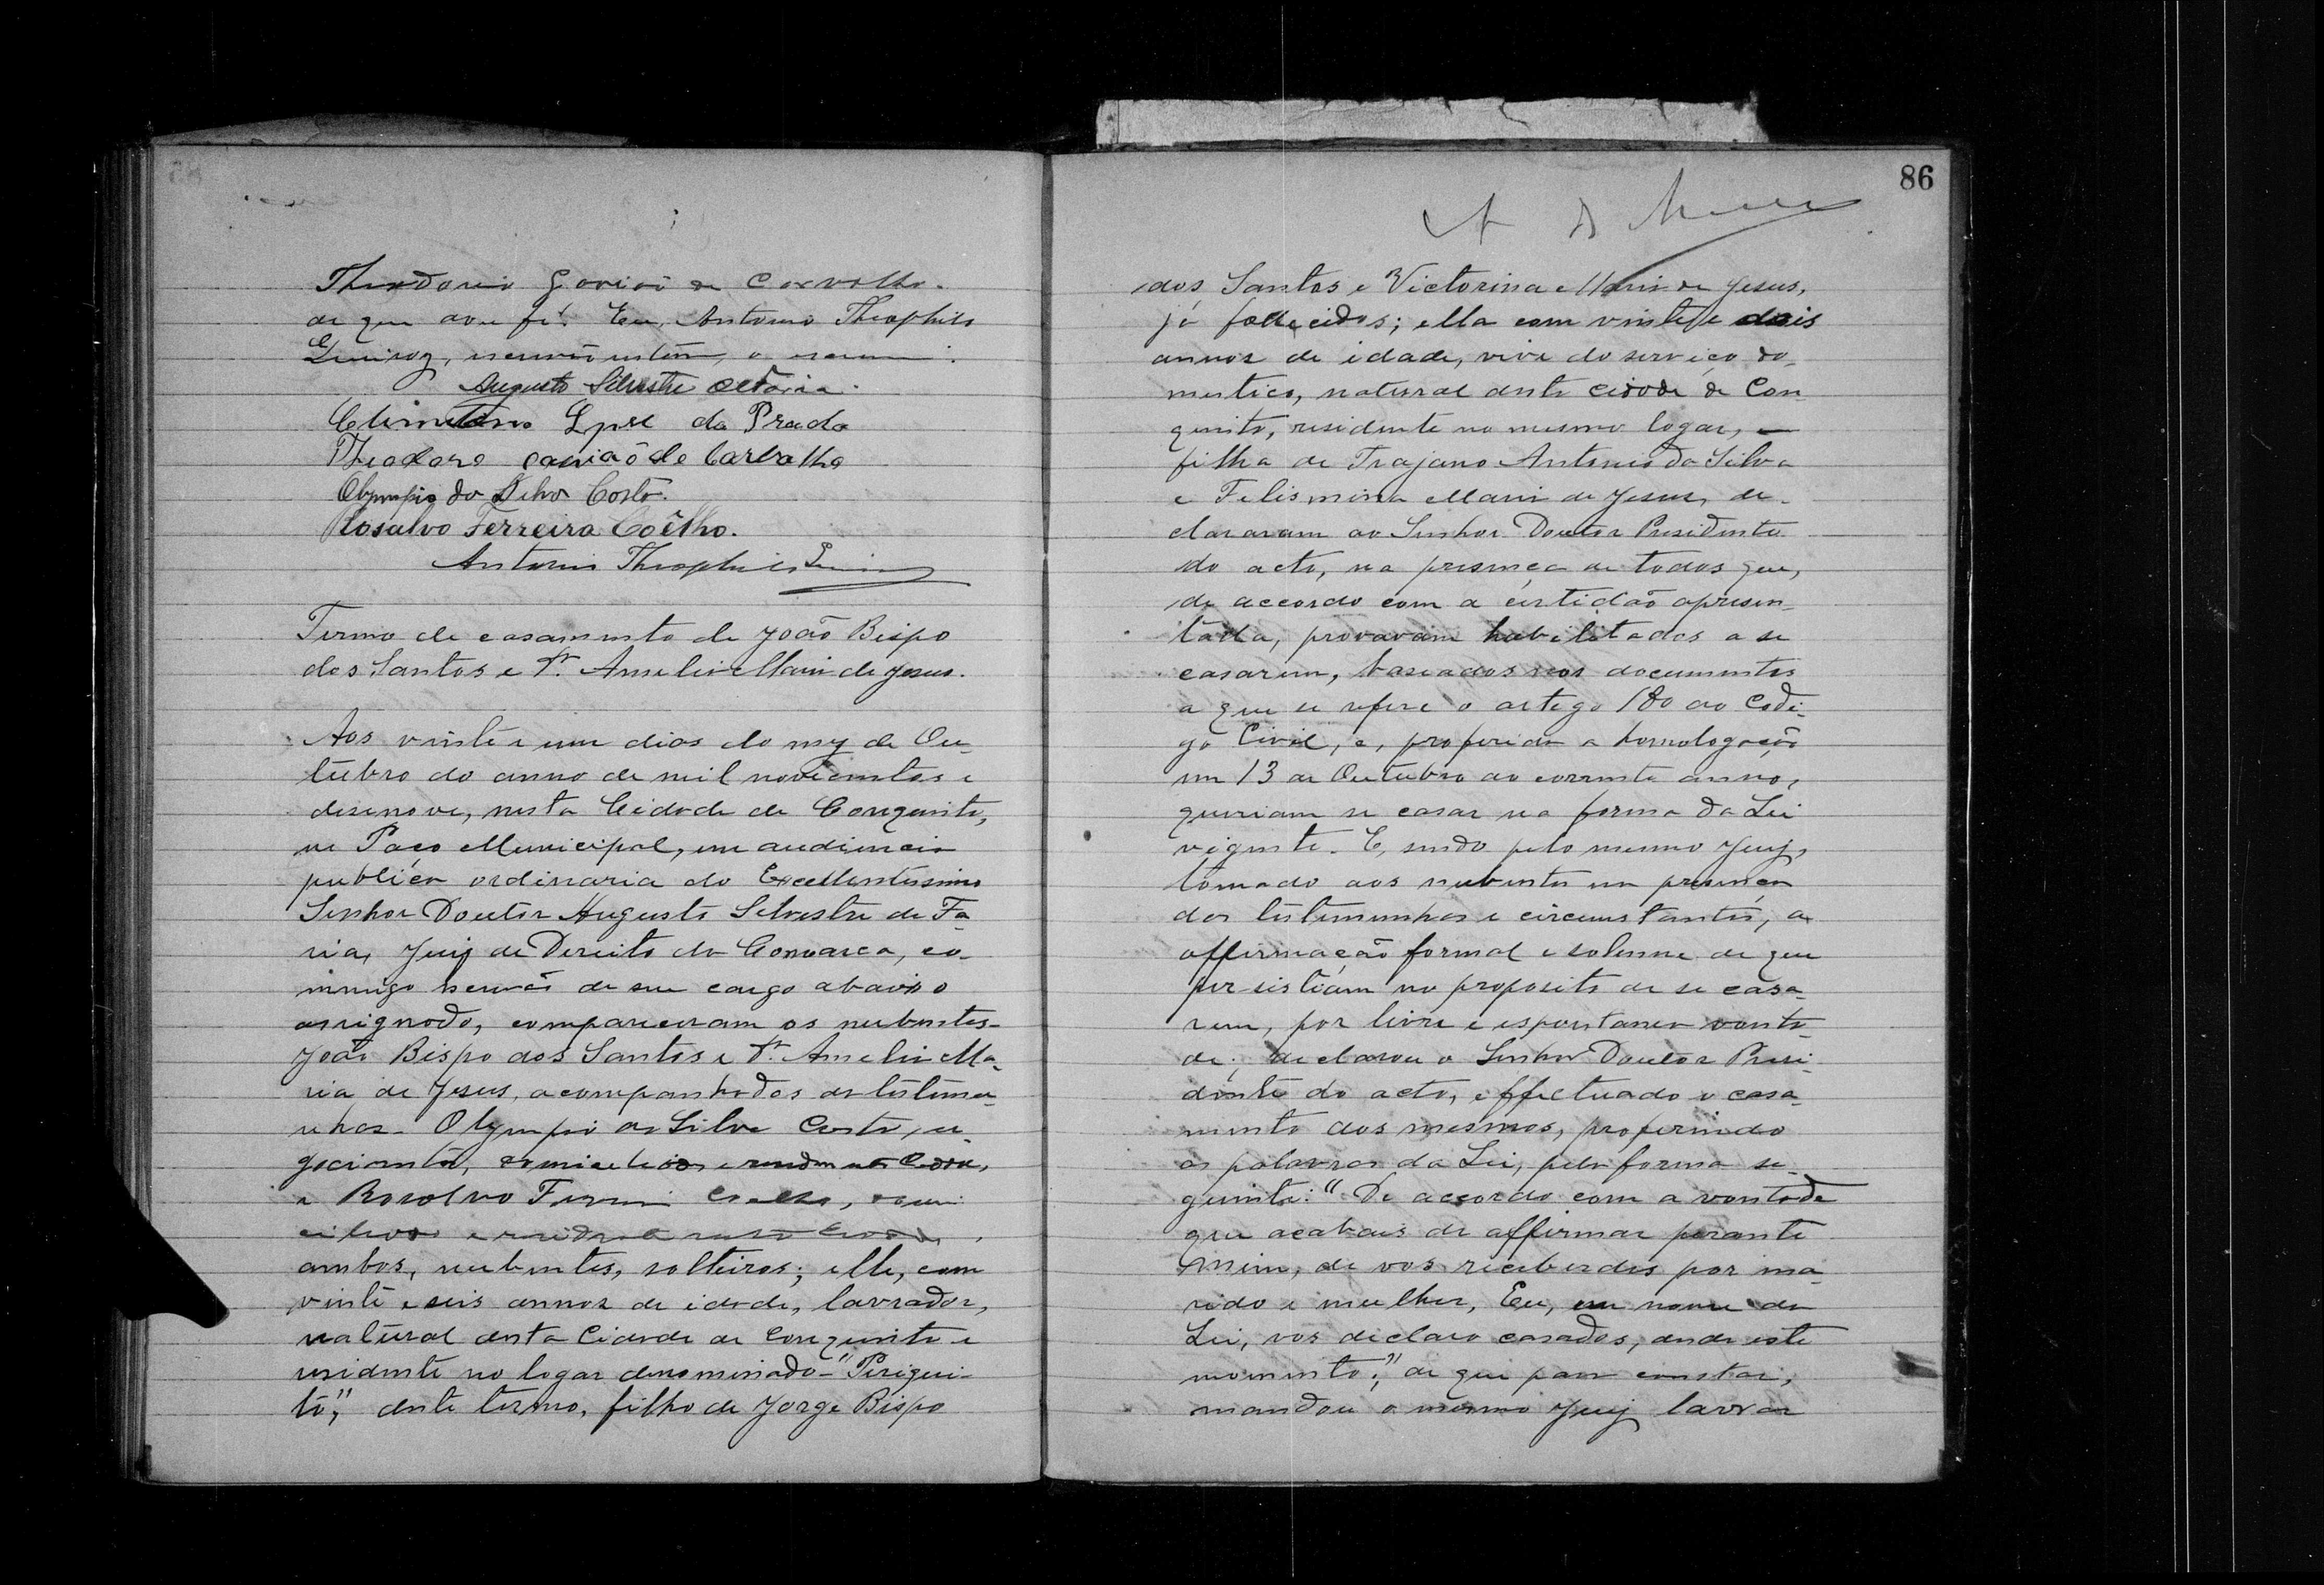 Theodorio Gavião de Carvalho.
de que dou fé. Eu, Antonio Theophilo
Queiroz, escrivão interino, o escrevi.
Augusto Silvestre de Faria.
Lopes de Prado
Theodoro Gavião de Carvalho
Olympio da Silva Costa.
Rosalvo Ferreira Coêlho.
Antonio Theophilo Queiroz
Termo de casamento de João Bispo
dos Santos e D. Amelia Maria de Jesus.
Aos vinte e um dias do mez de Ou-
tubro do anno de mil novecentos e
desenove, nesta Cidade de Conquista,
no Paço Municipal, em audiencia
publica ordinaria do Excellentissimo
Senhor Doutor Augusto Silvestre de Fa-
ria, Juiz de Direito da Comarca, co-
migo escrivão de seu cargo abaixo
assignado, compareceram os nubentes-
João Bispo dos Santos e D. Amelia Ma-
ria de Jesus, acompanhados das testemu-
nhas- Olympio da Silva Costa, ne-
gociante, domiciliado e residente nesta Cidade,
e Rosalvo Ferreira Coelho, domi-
ciliado e residente nesta Cidade,
ambos, nubentes, solteiros; elle, com
vinte e seis annos de idade, lavrador,
natural desta Cidade de Conquista e
residente no logar denominado-"Periqui-
to", deste termo, filho de Jorge Bispo
86
dos Santos e Victorina Maria de Jesus,
já fallecidos; ella com vinte e dois
annos de idade, vive do serviço do-
mestico, natural desta cidade de Con-
quista, residente no mesmo logar, -
filha de Trajano Antonio da Silva
e Felismina Maria de Jesus, de-
clararam ao Senhor Doutor Presidente
do acto, na presença de todos que,
de accordo com a certidão apresen-
tada, provavam habilitados a se
casarem, baseados nos documentos
a que se refere o artigo 180 do Codi-
go Civil, e, proferida a homologação
em 13 de Outubro do corrente anno,
queriam se casar na forma da Lei
vigente. E, sendo pelo mesmo Juiz,
tomado aos nubentes em presença
das testemunhas e circumstantes, a
affirmação formal e solenne de que
persistiam no proposito de se casa-
rem, por livre e espontanea vonta-
de; declarou o Senhor Doutor Presi-
dente do acto, effectuado o casa-
mento dos mesmos, proferindo
as palavras da Lei, pela forma se-
guinte: "De accordo com a vontade
que acabais de affirmar perante
mim, de vos receberdes por ma-
rido e mulher, Eu, em nome da
Lei, vos declaro casados, desde este
momento", de que para constar,
mandou o mesmo Juiz lavrar